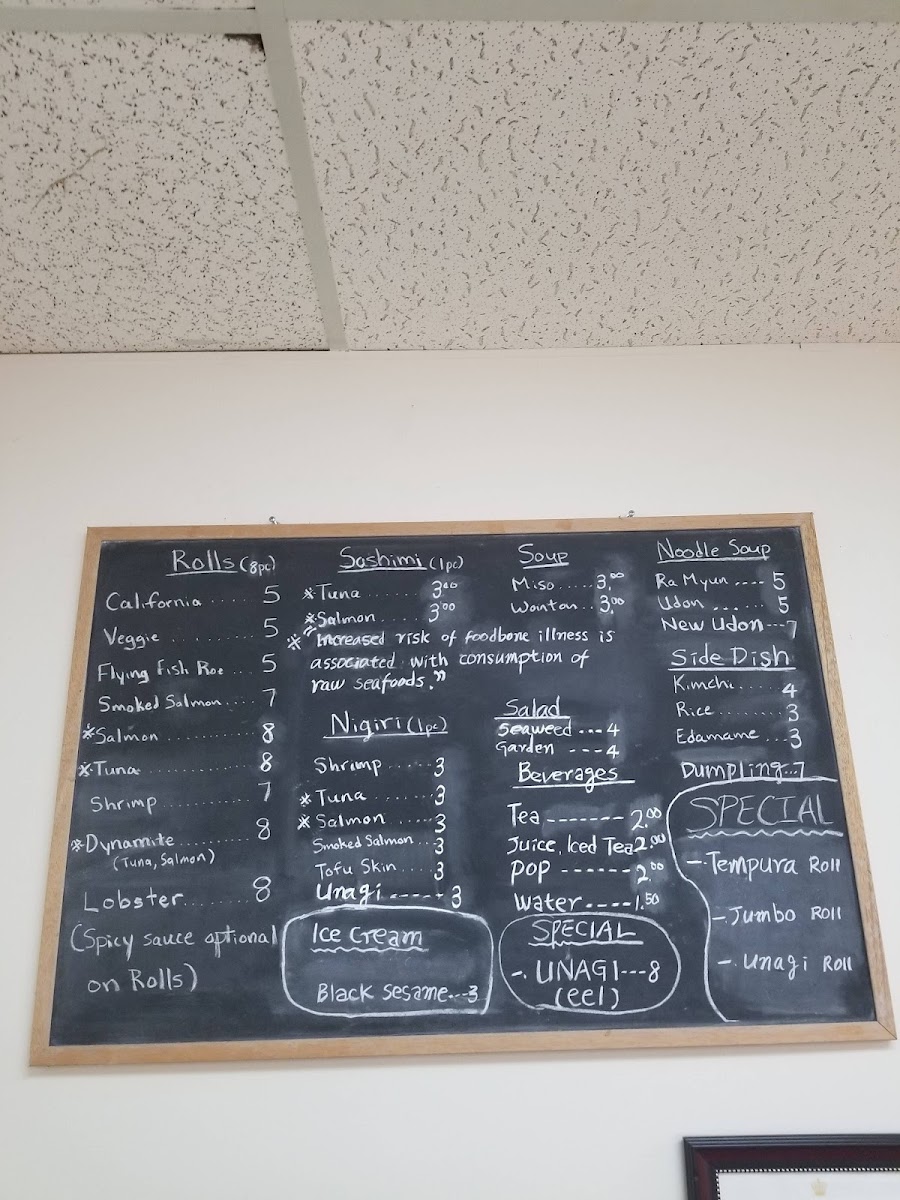 Rolls (8pc)
California ........ 5
Veggie ........ 5
Flying Fish Roe ... 5
Smoked Salmon .... 7
※Salmon ........ 8
※Tuna ........ 8
Shrimp ........ 7
※Dynamite ........ 8
(Tuna, Salmon)
Lobster ........ 8
(Spicy sauce optional
on Rolls)
Sashimi (1pc)
※Tuna ........ 3.00
※Salmon ........ 3.00
※"Increased risk of foodbone illness is
associated with consumption of
raw seafoods."
Nigiri (1pc)
Shrimp ..... 3
※Tuna ..... 3
※Salmon ..... 3
Smoked Salmon ... 3
Tofu Skin .... 3
Unagi ----- 3
Ice Cream
Black Sesame --- 3
Soup
Miso ..... 3.00
Wontan .. 3.00
Salad
Seaweed --- 4
Garden --- 4
Beverages
Tea ------- 2.00
Juice, Iced Tea 2.00
Pop ------ 2.00
Water ---- 1.50
SPECIAL
- UNAGI --- 8
(eel)
Noodle Soup
Ra Myun ---- 5
Udon ...... 5
New Udon --- 7
Side Dish
Kimchi ..... 4
Rice ....... 3
Edamame ... 3
Dumpling .. 7
SPECIAL
- Tempura Roll
- Jumbo Roll
- Unagi Roll